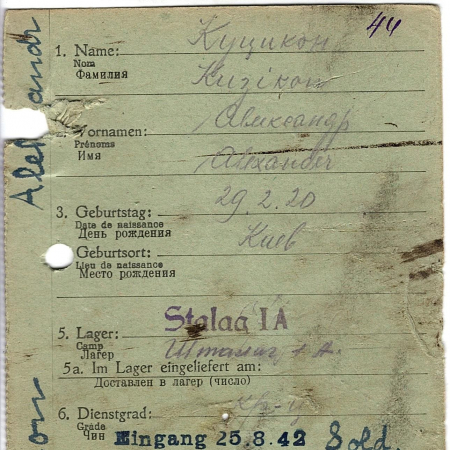 44
1. Name: Куцикон
Nom
Фамилия
Kuzikon
2. Vornamen: Александр
Prénoms
Имя
Alexander
3. Geburtstag: 29.2.20
Date de naissance
День рождения
Geburtsort: Киев
Lieu de naissance
Место рождения
Stalag IA
5. Lager: Шталаг 1 А.
Camp
Лагер
5a. Im Lager eingeliefert am:
Доставлен в лагер (число)
6. Dienstgrad:
Grade
Чин
Eingang 25.8.42 Sold.